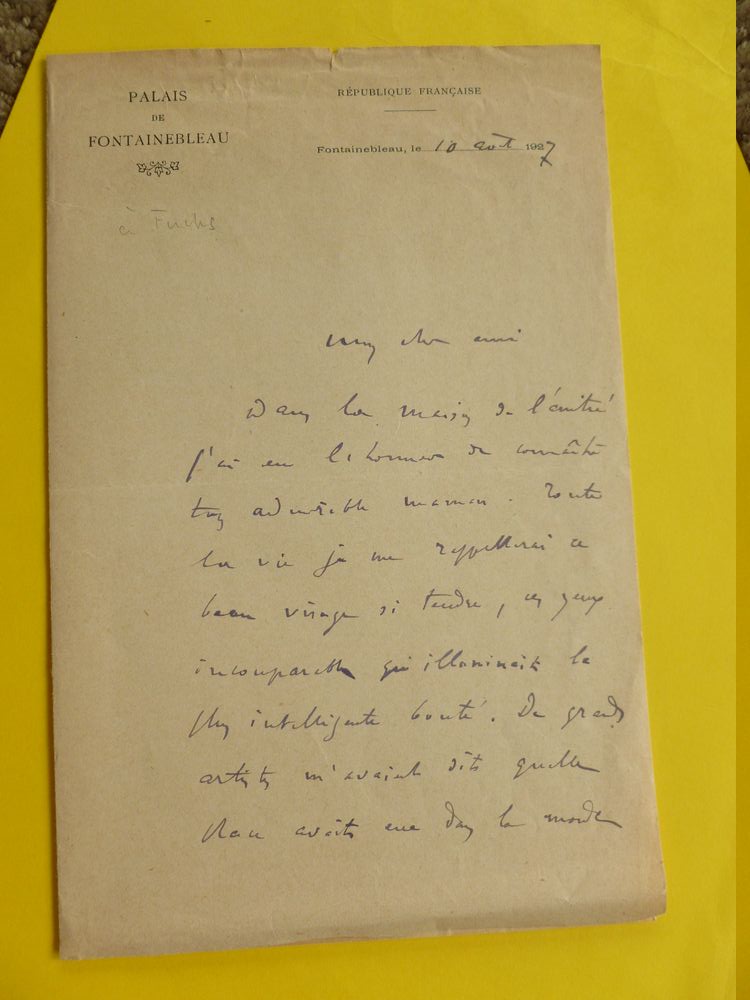 PALAIS
DE
FONTAINEBLEAU
RÉPUBLIQUE FRANÇAISE
Fontainebleau, le 10 août 1927
à Fuchs
Mon cher ami
Dans la maison de l'amitié
j'ai eu l'honneur de connaître
ton admirable maman. Toute
la vie je me rappellerai ce
beau visage si tendre, ces yeux
incomparables qu'illuminait la
plus intelligente bonté. De grands
artistes m'avaient dits quelle
place avait eue dans le monde